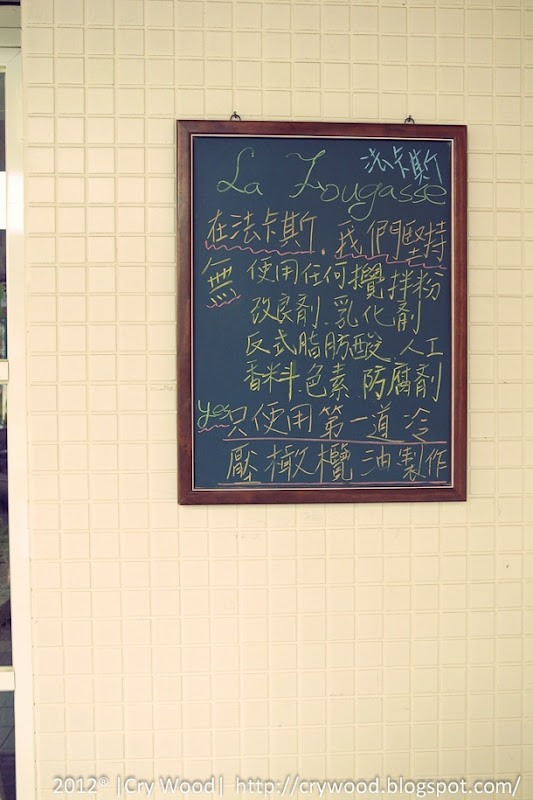 法卡斯
La Fougasse
在法卡斯，我們堅持
無 使用任何攪拌粉
改良劑、乳化劑
反式脂肪酸、人工
香料、色素、防腐劑
yes 只使用第一道冷
壓橄欖油製作
2012® |Cry Wood| http://crywood.blogspot.com/